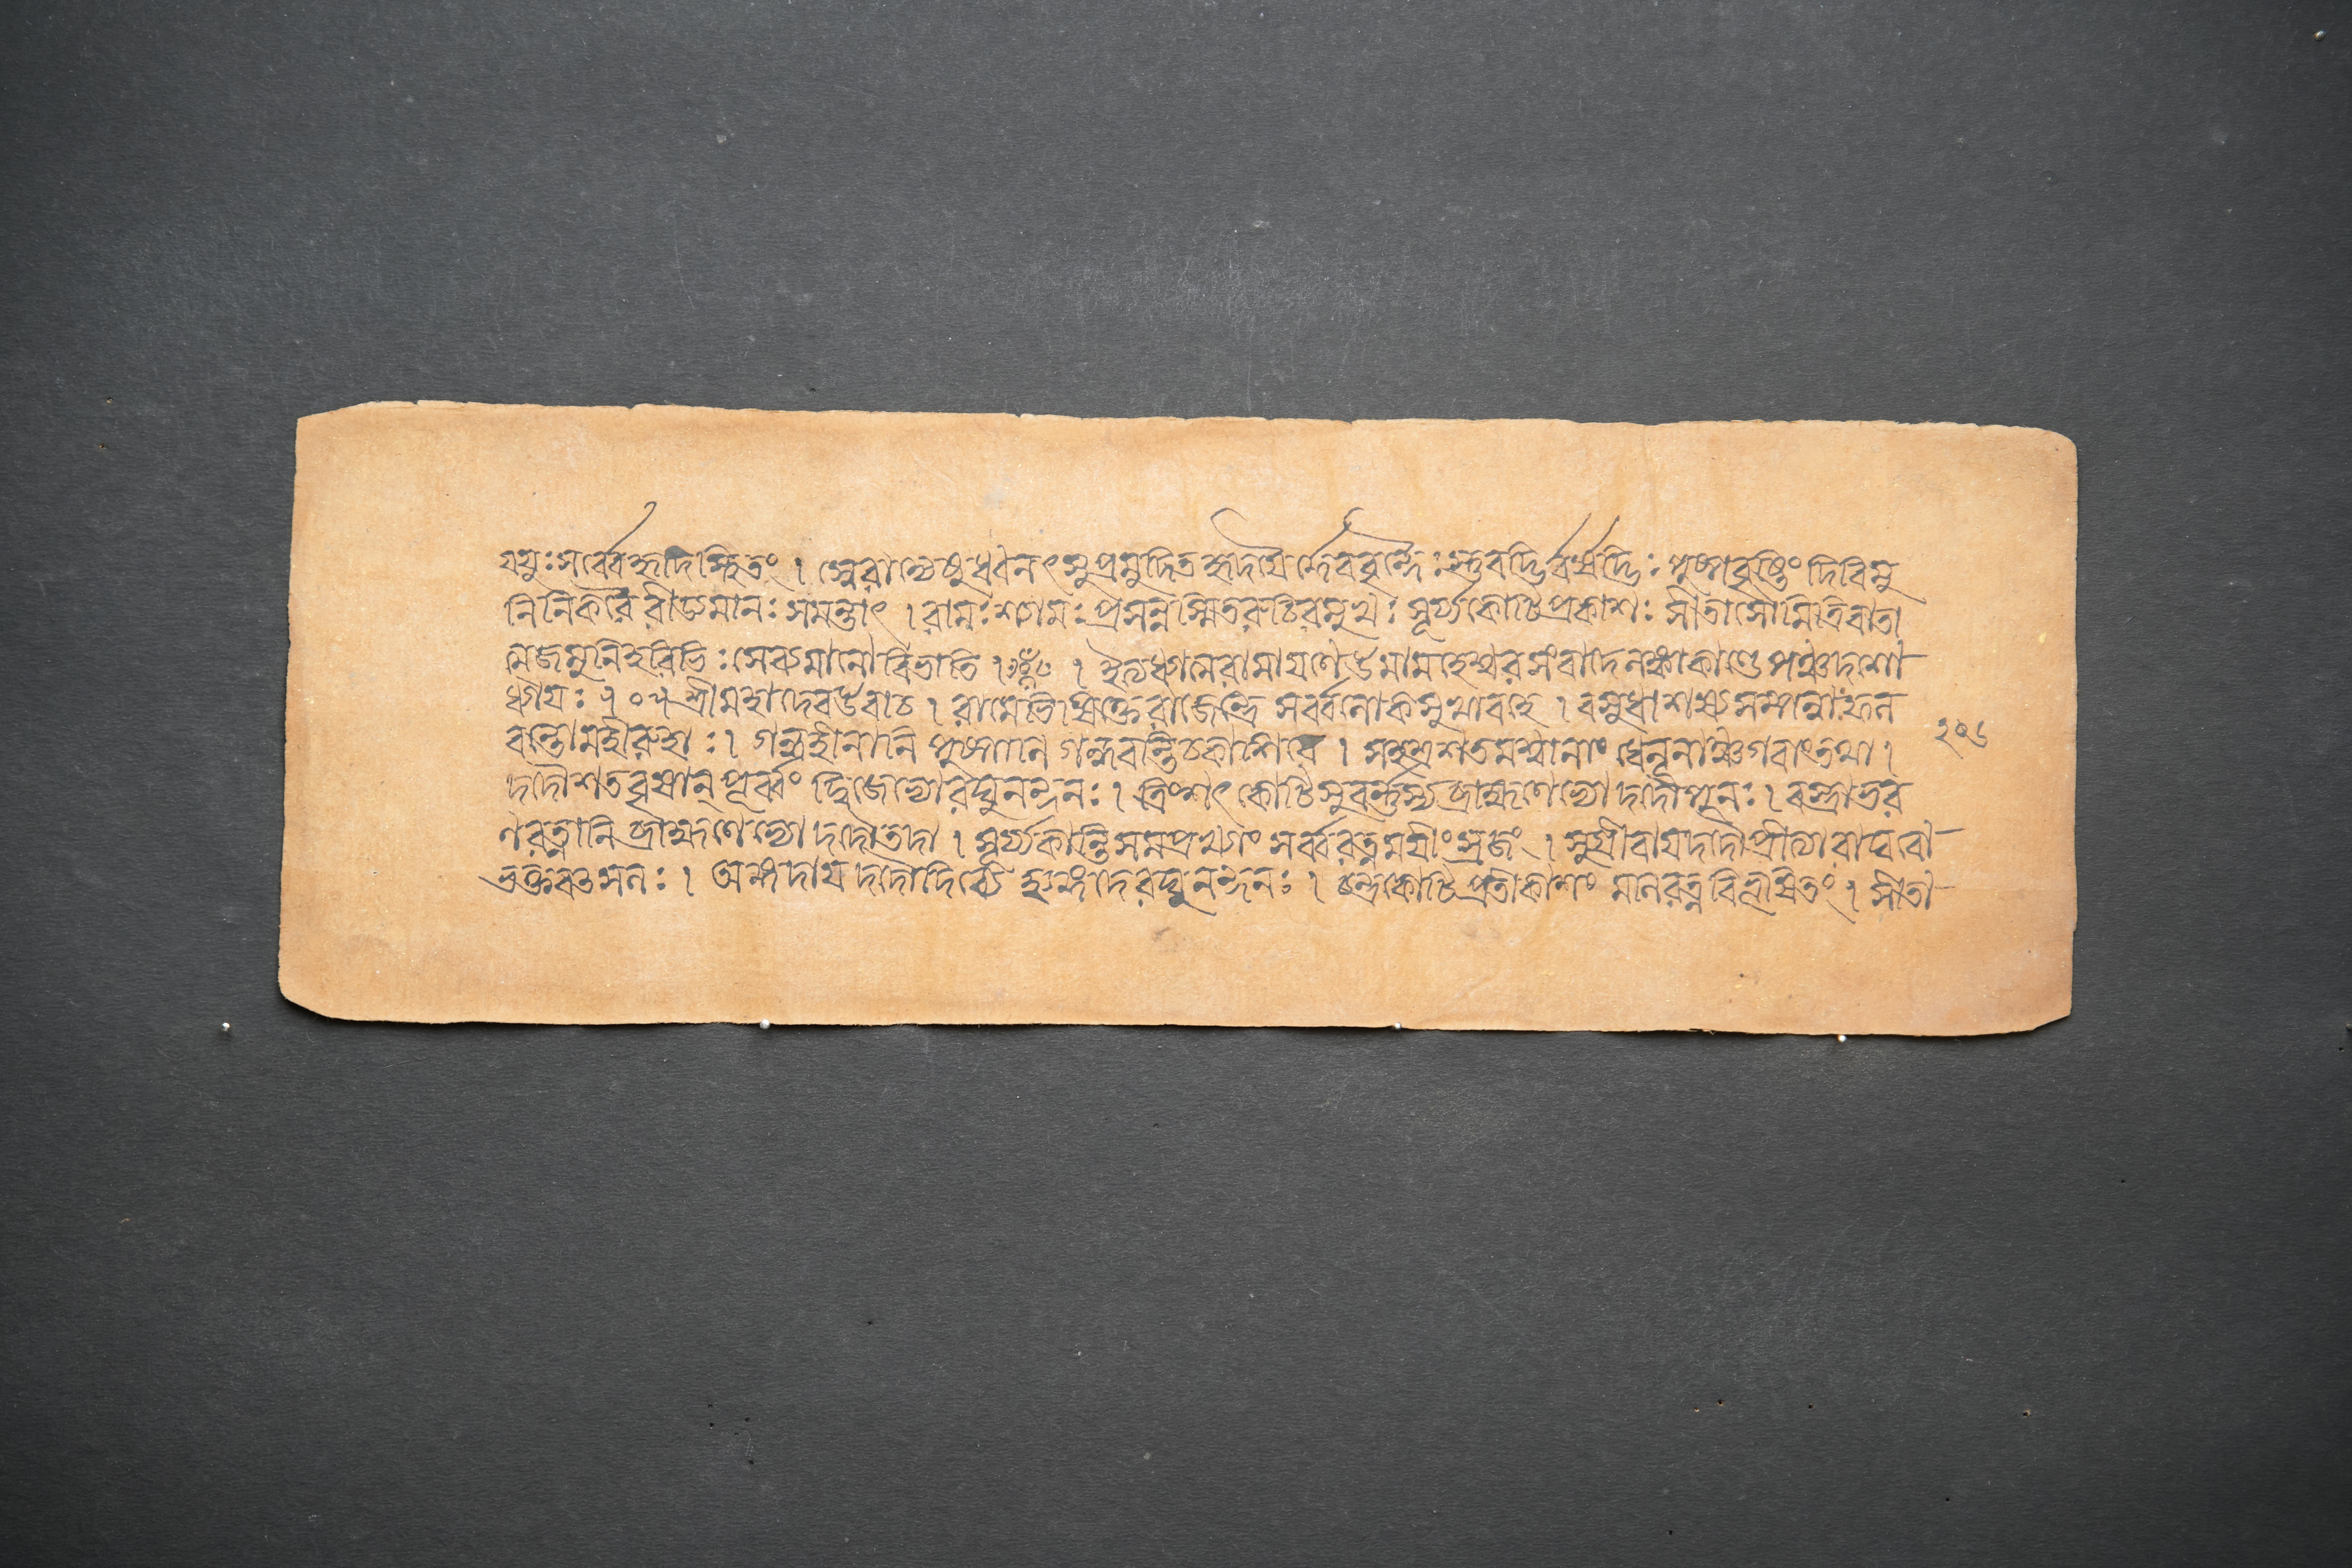 যযুঃ সর্ব্বে বহৃদিস্থিতং । স্বেরাদ্যেষু ধ্বনৎসু প্রমুদিতহৃদয়ৈর্দ্দেববৃন্দৈঃ স্তুবদ্ভির্বর্ষদ্ভিঃ পুষ্পবৃষ্টিং দিবিমু
নিনিকরৈরীড্যমানঃ সমন্তাৎ । রামঃ শ্যামঃ প্রসন্নস্মিতরুচিরমুখঃ সূর্য্যকোটিপ্রকাশঃ সীতাসৌমিত্রিবাতা
ত্মজমুনিহরিভিঃ সেব্যমানো বিভাতি । । ইত্যধ্যাত্মরামায়ণে উমামহেশ্বরসংবাদে লঙ্কাকাণ্ডে পঞ্চদশো
ধ্যায়ঃ ১০৫ শ্রীমহাদেব উবাচ । রামেভিষিক্তে রাজেন্দ্রে সর্ব্বলোকসুখাবহে । বসুধা শস্যসম্পন্না ফল
বন্তো মহীরুহাঃ । গন্ধহীনানি পুষ্পাণি গন্ধবন্তি চকাশিরে । সহস্রশতমশ্বানাং ধেনূনাঞ্চ গবাং তথা ।
দদৌ শতবৃষান্ পূর্ব্বং দ্বিজেভ্যো রঘুনন্দনঃ । ত্রিংশৎ কোটি সুবর্ণস্য ব্রাহ্মণেভ্যো দদৌ পুনঃ । বস্ত্রাভর
ণরত্নানি ব্রাহ্মণেভ্যো দদৌ তদা । সূর্য্যকান্তিসমপ্রখ্যাং সর্ব্বরত্নময়ীং স্রজং । সুগ্রীবায় দদৌ প্রীত্যা রাঘবো
ভক্তবৎসলঃ । অঙ্গদায় দদৌ দিব্যে হ্যঙ্গদে রঘুনন্দনঃ । চন্দ্রকোটিপ্রতীকাশং মনিরত্নবিভূষিতং । সীতা